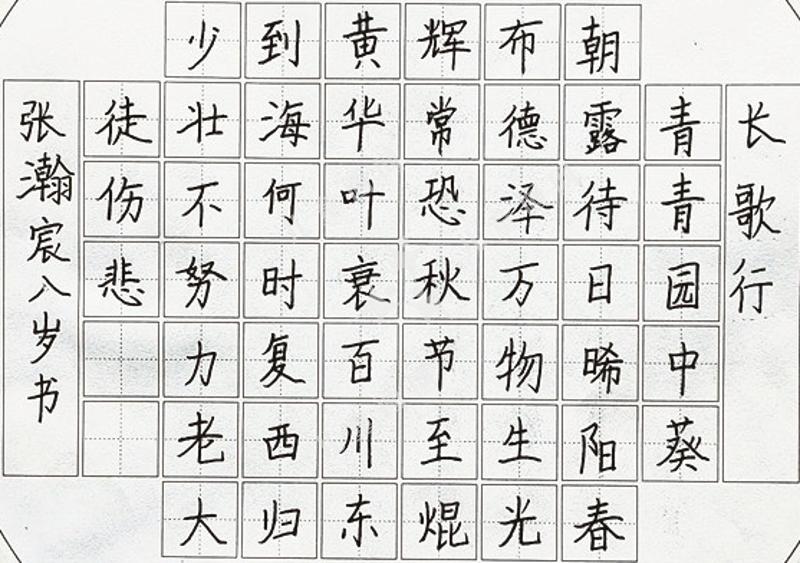 长歌行
青青园中葵
朝露待日晞阳春
布德泽万物生光
辉常恐秋节至焜
黄华叶衰百川东
到海何时复西归
少壮不努力老大
徒伤悲
张瀚宸八岁书